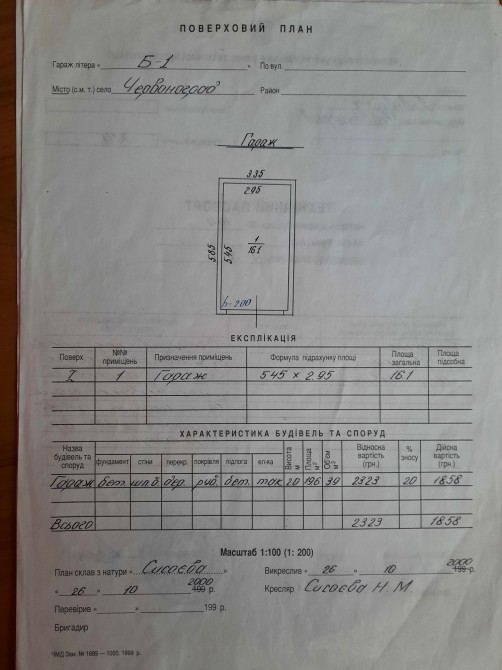 ПОВЕРХОВИЙ ПЛАН
Гараж літера « Б-1 » По вул.
Місто (с.м.т.) село Червоноград Район
Гараж
3.35
2.95
5.85
5.45
1
16.1
h=2.00
ЕКСПЛІКАЦІЯ
Поверх №№ приміщень Призначення приміщень Формула підрахунку площі Площа загальна Площа підсобна
I 1 Гараж 5.45 × 2.95 16.1
ХАРАКТЕРИСТИКА БУДІВЕЛЬ ТА СПОРУД
Назва будівель та споруд фундамент стіни перекр. покрівля підлога ел-ка Висота м Площа м² Об'єм м³ Відносна вартість (грн.) % зносу Дійсна вартість (грн.)
Гараж бет. шл.б. дер. руб. бет. ток 2.0 19.6 39 2323 20 1858
Всього 2323 1858
Масштаб 1:100 (1: 200)
План склав з натури « Сисоєва » Викреслив « 26 » 10 2000 199 р.
« 26 » 10 2000 199 р. Кресляр Сисоєва Н.М
Перевірив « » 199 р.
Бригадир
ЧМД Зам. № 1669 — 1000. 1999 р.